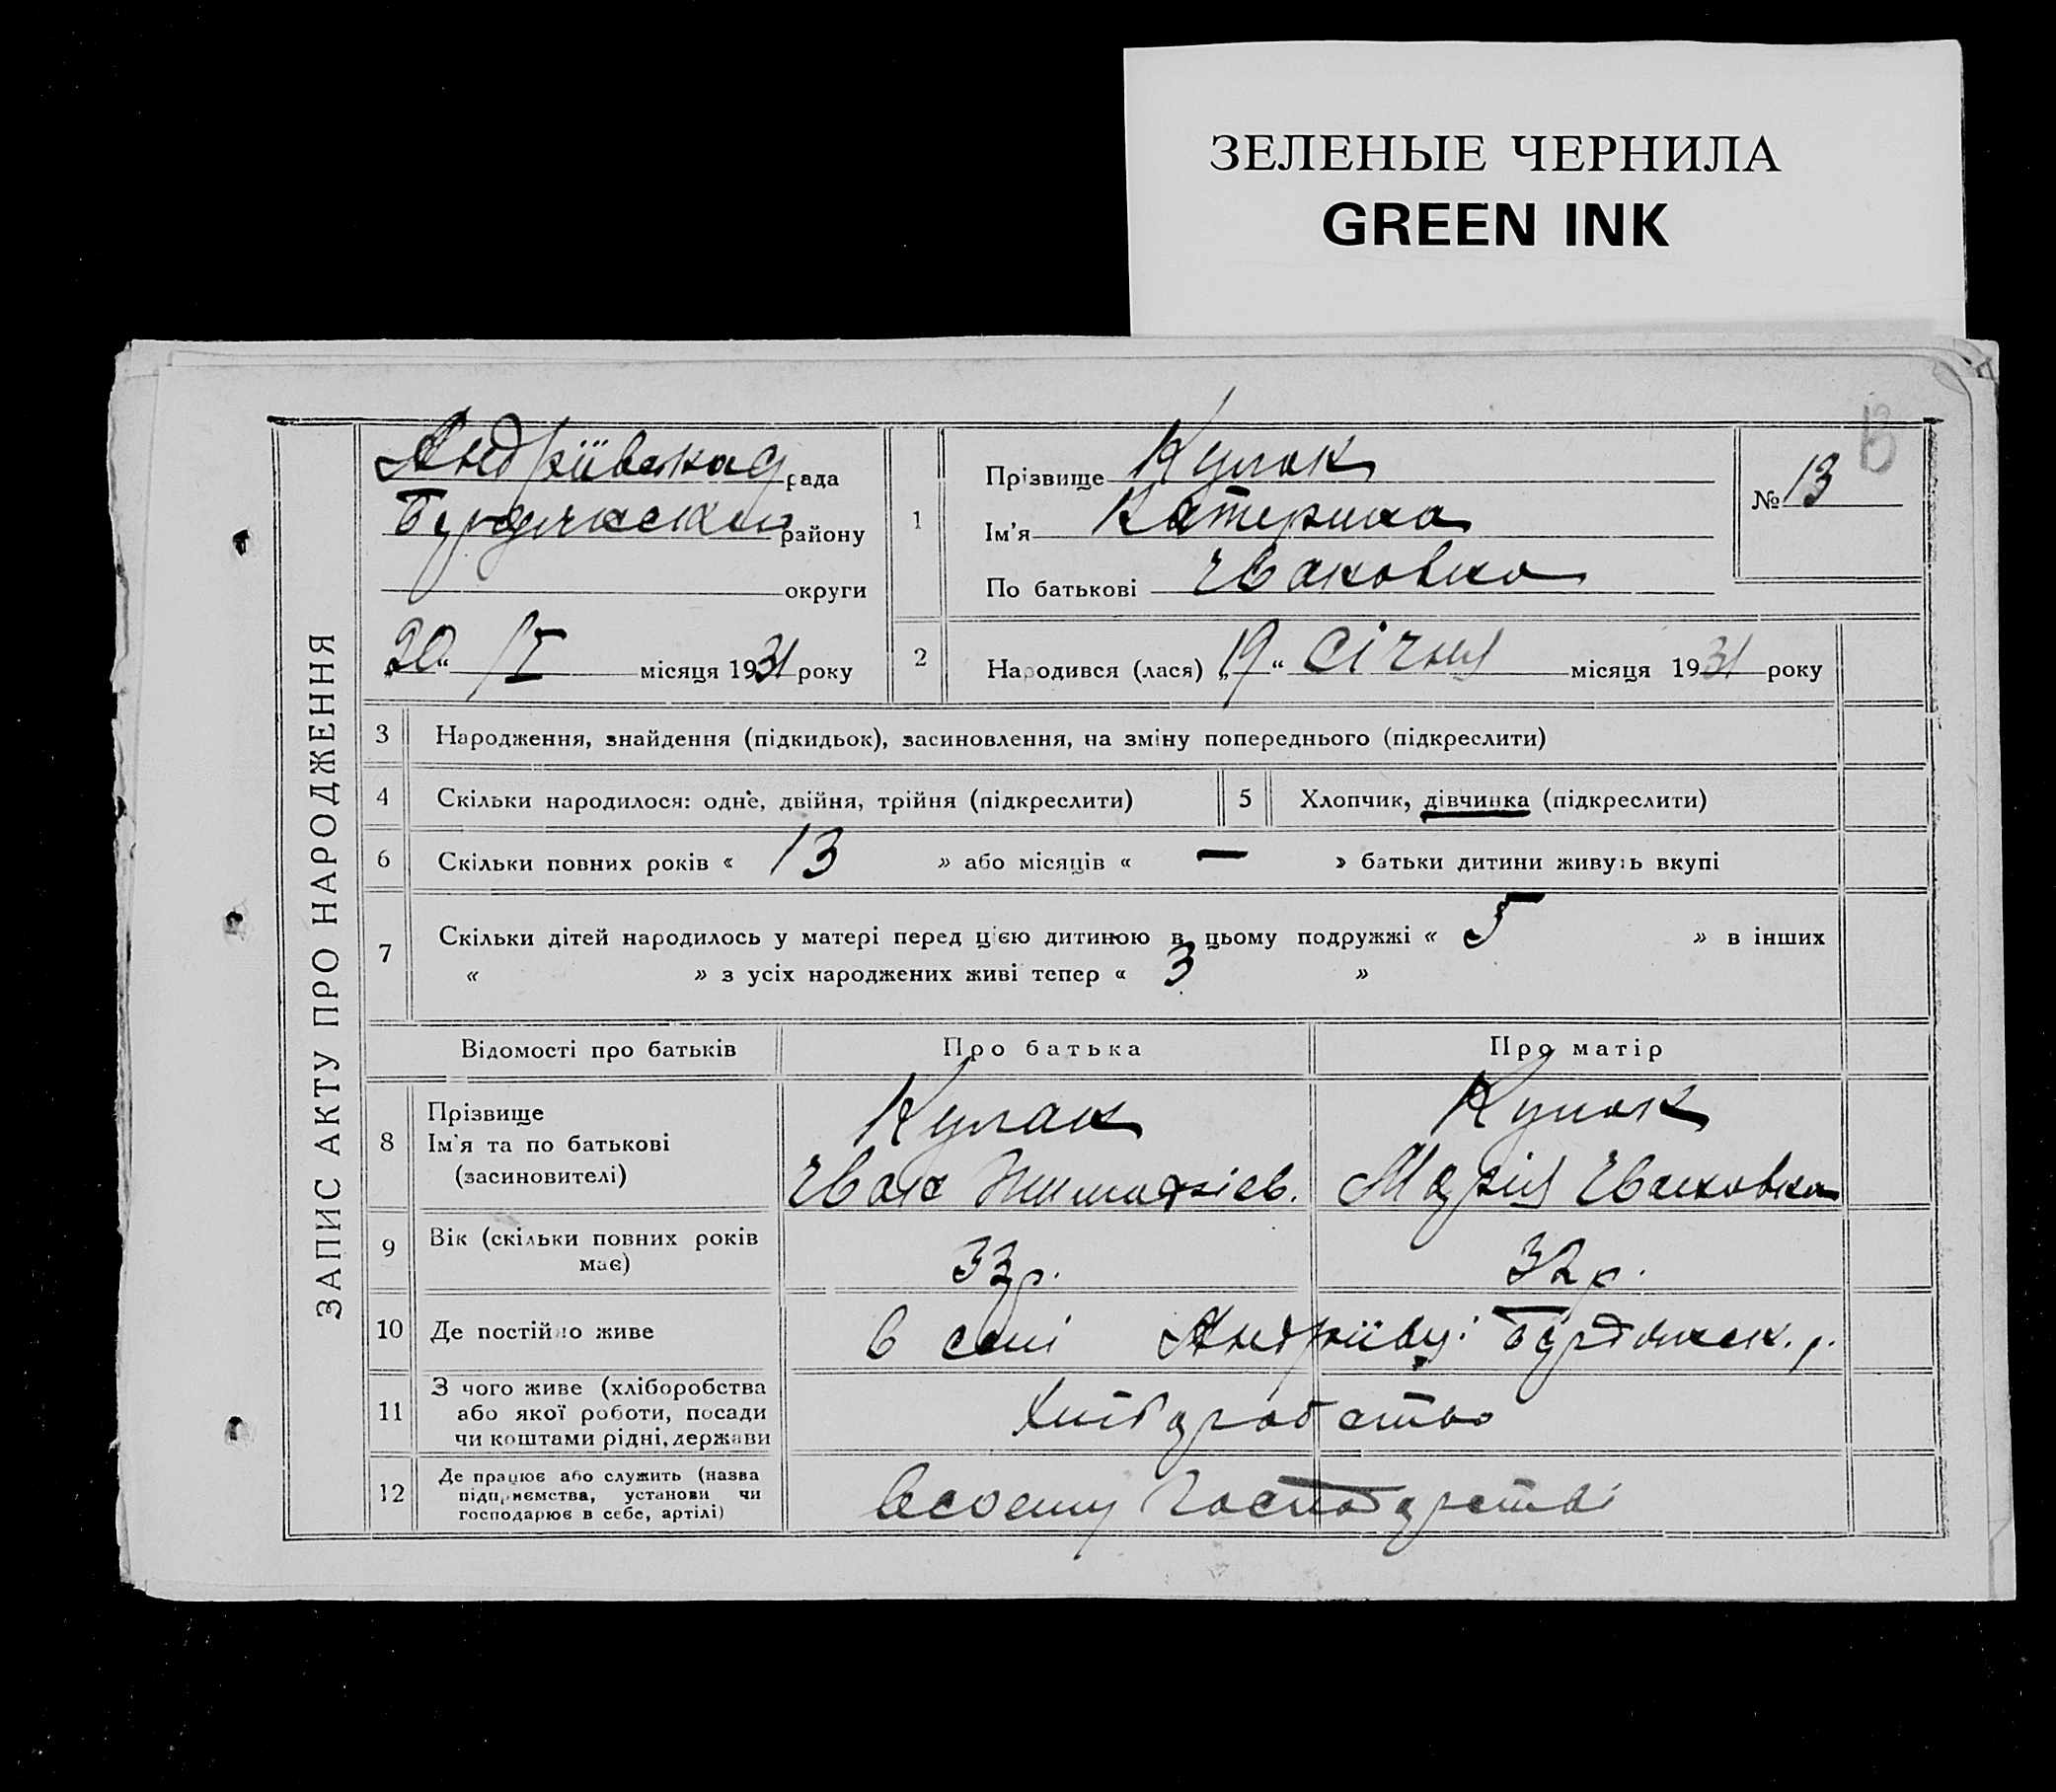 ЗЕЛЕНЫЕ ЧЕРНИЛА
GREEN INK
В
ЗАПИС АКТУ ПРО НАРОДЖЕННЯ
Андріївская рада
Бердянский району
округи
20 “ /I місяця 1931 року
1
Прізвище Кулак
Ім'я Катерина
По батькові Івановна
№ 13
2 Народився (лася) „19“ Січня місяця 1931 року
3 Народження, знайдення (підкидьок), засиновлення, на зміну попереднього (підкреслити)
4 Скільки народилося: одне, двійня, трійня (підкреслити)
5 Хлопчик, дівчинка (підкреслити)
6 Скільки повних років « 13 » або місяців « — » батьки дитини живуть вкупі
7 Скільки дітей народилось у матері перед цією дитиною в цьому подружжі « 5 » в інших
« » з усіх народжених живі тепер « 3 »
Відомості про батьків Про батька Про матір
8 Прізвище
Ім'я та по батькові
(засиновителі)
Кулак
Іван
Кулак
Марія Івановна
9 Вік (скільки повних років
має)
33 р. 32 р.
10 Де постійно живе в селі Андріївці Бердянск. р.
11 З чого живе (хліборобства
або якої роботи, посади
чи коштами рідні, держави
Хліборобство
12 Де працює або служить (назва
підприємства, установи чи
господарює в себе, артілі)
Всвоему Господарстві